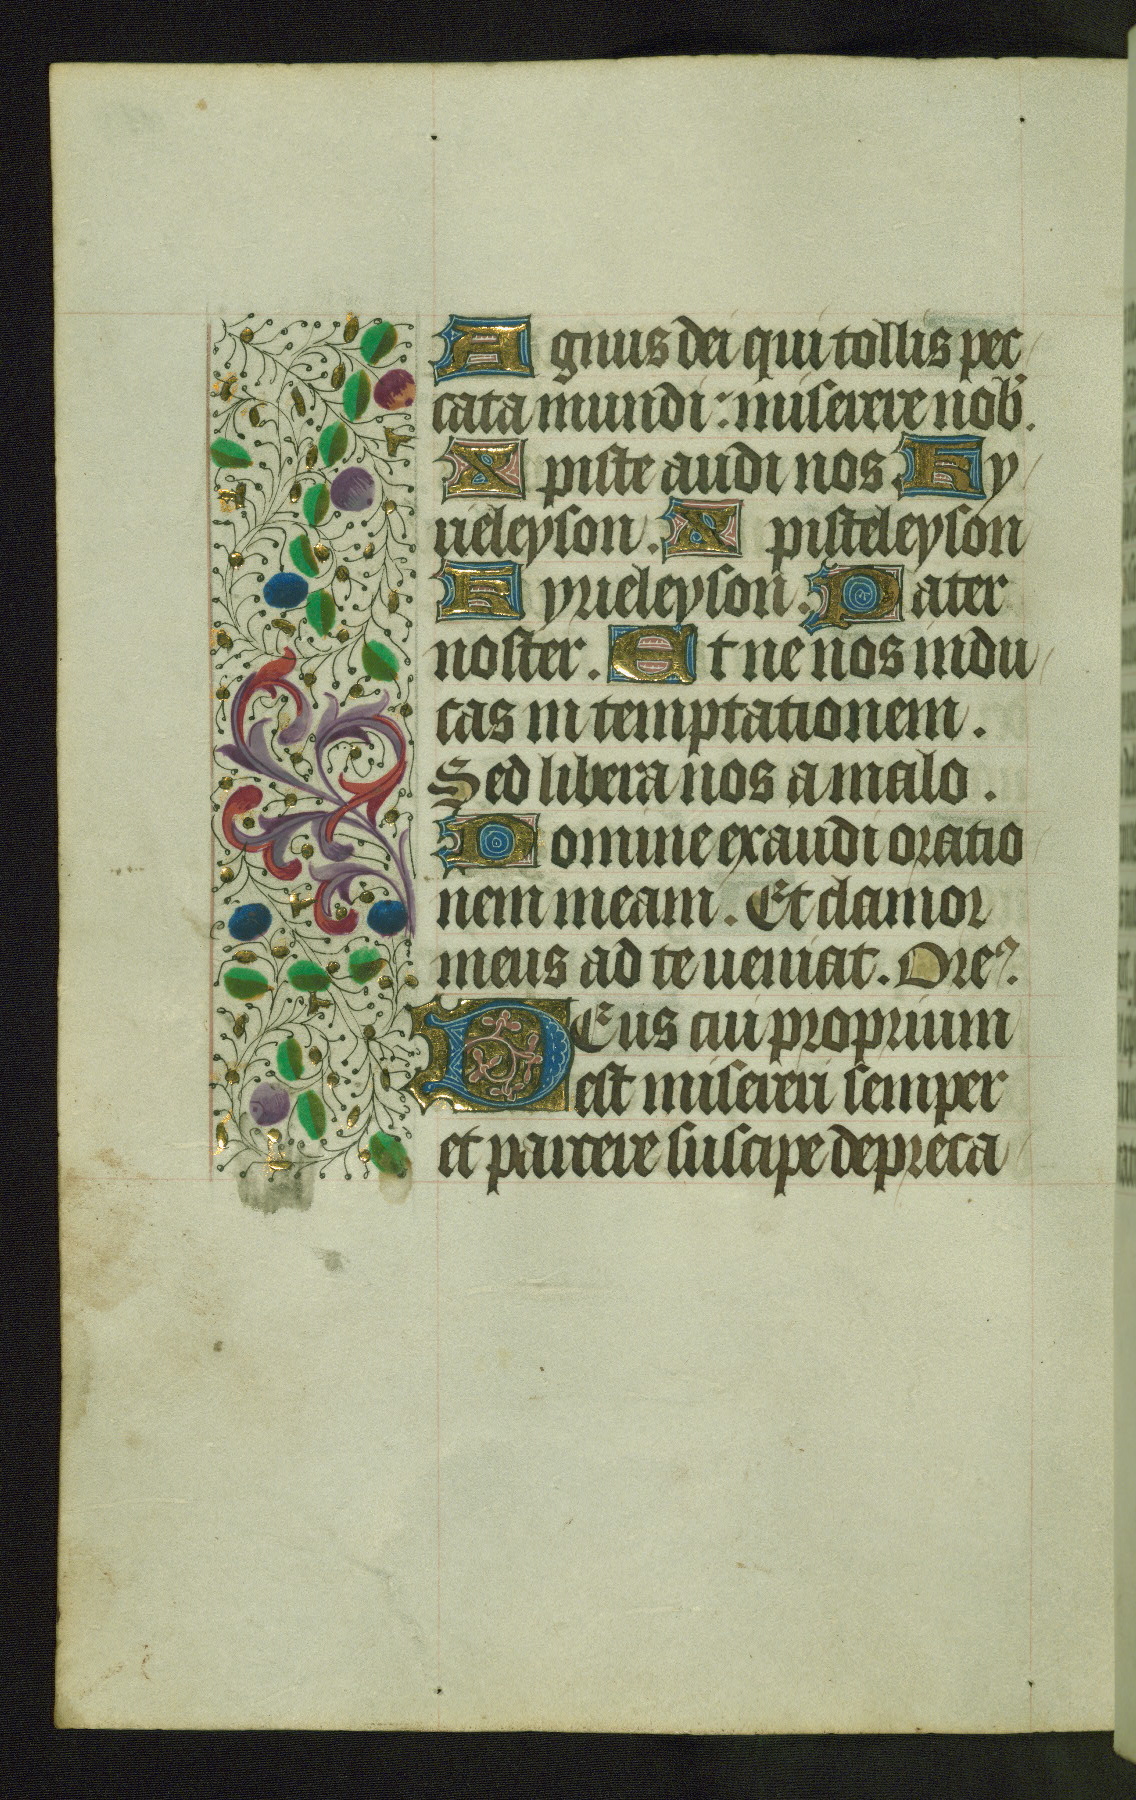 Agnus dei qui tollis pec
cata mundi: miserere nob'.
Xpiste audi nos. Ky
rieleyson. Xpisteleyson
Kyrieleyson. Pater
noster. Et ne nos indu
cas in temptationem.
Sed libera nos a malo.
Domine exaudi oratio
nem meam. Et clamor
meus ad te ueniat. Ore⁹.
DEus cui proprium
est misereri semper
et parcere suscipe depreca